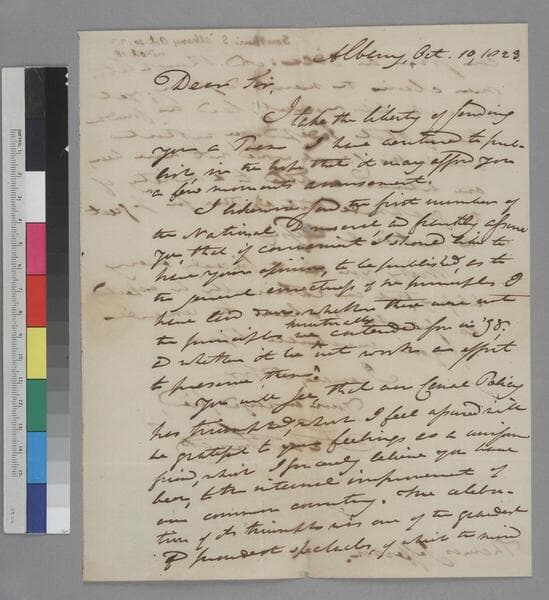 Albany, Oct. 10, 1823.
Dear Sir,
I take the liberty of sending
you a Poem I have ventured to pub-
lish, in the hope that it may afford you
a few moments amusement.
I likewise send the first number of
the National Democrat, and frankly assure
you, that if convenient I should like to
have your opinion, to be published, as to
the general correctness of the principles I
have laid down, whether these were not
the principles we mutually contended for in '98.
& whether it be not worth an effort
to preserve them?
You will see, that our Canal Policy
has triumphed, which I feel assured will
be grateful to your feelings as a uniform
friend, which I sincerely believe you have
been, to the internal improvement of
our common country. The celebra-
tion of its triumph is one of the grandest
& proudest spectacles, of which the mind